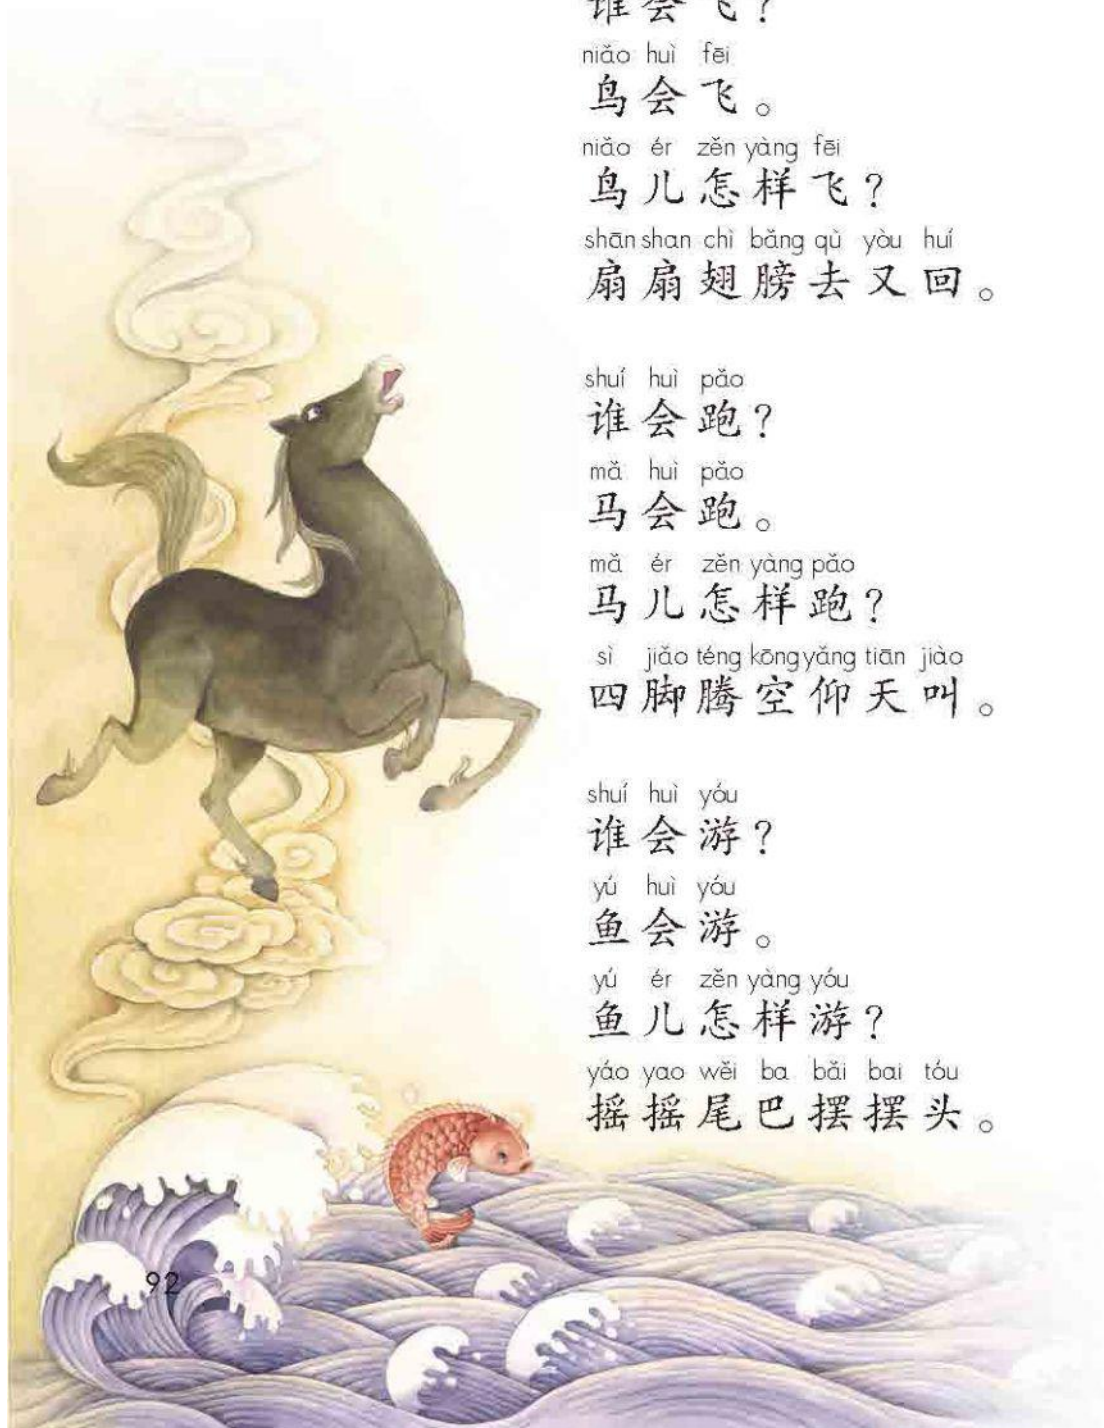 谁会飞?
niǎo huì fēi
鸟会飞。
niǎo ér zěn yàng fēi
鸟儿怎样飞?
shān shan chì bǎng qù yòu huí
扇扇翅膀去又回。
shuí huì pǎo
谁会跑?
mǎ huì pǎo
马会跑。
mǎ ér zěn yàng pǎo
马儿怎样跑?
sì jiǎo téng kōng yǎng tiān jiào
四脚腾空仰天叫。
shuí huì yóu
谁会游?
yú huì yóu
鱼会游。
yú ér zěn yàng yóu
鱼儿怎样游?
yáo yao wěi ba bǎi bai tóu
摇摇尾巴摆摆头。
92